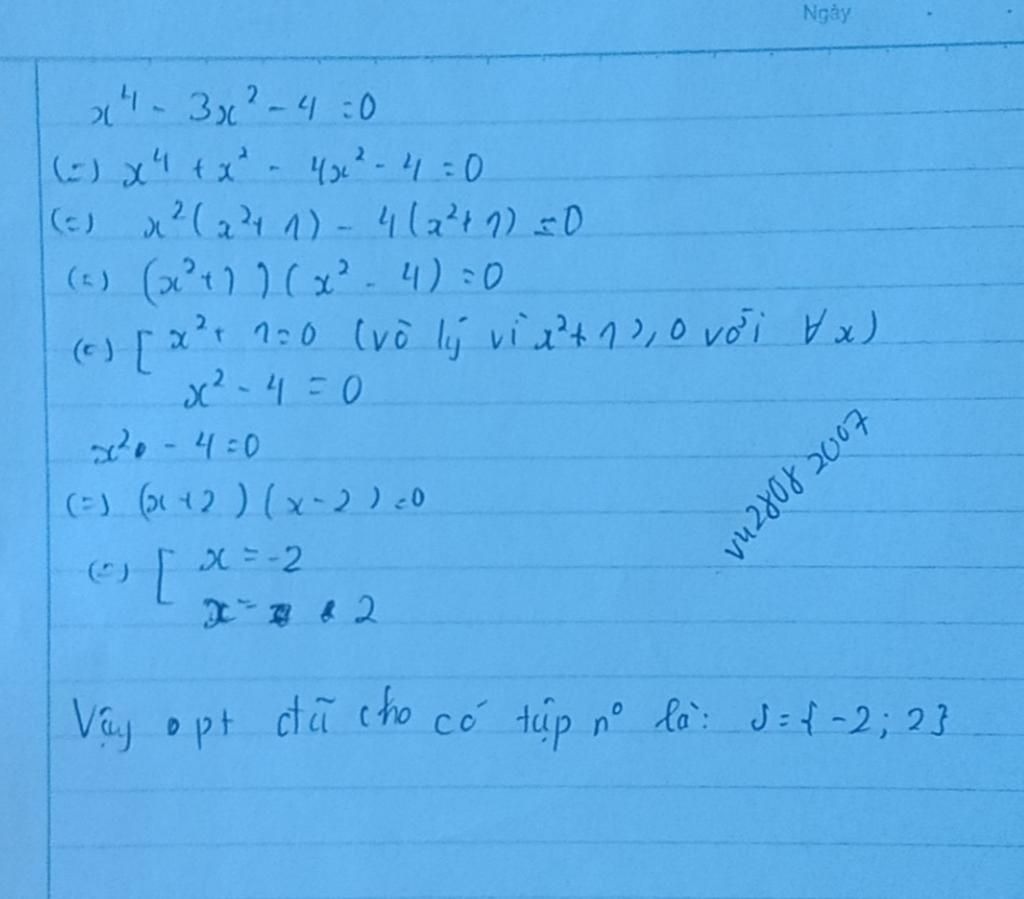 Ngày
x⁴ - 3x² - 4 = 0
(=) x⁴ + x² - 4x² - 4 = 0
(=) x²(x² + 1) - 4(x² + 1) = 0
(=) (x² + 1)(x² - 4) = 0
(=) [ x² + 1 = 0 (vô lý vì x² + 1 ≥ 0 với ∀x)
x² - 4 = 0
x² - 4 = 0
(=) (x + 2)(x - 2) = 0
(=) [ x = -2
x = 2
vu28082007
Vậy pt đã cho có tập n° là: S = { -2; 2}